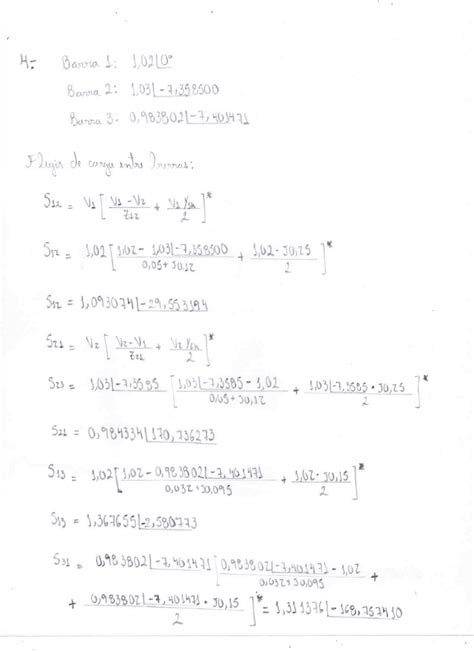 4-  Barra 1: 1,02∠0°
Barra 2: 1,03∠-7,358500
Barra 3: 0,983802∠-7,401471
Flujos de carga entre barras:
S12 = V1 [ (V1 - V2)/Z12 + (V1 Ysh)/2 ]*
S12 = 1,02 [ (1,02 - 1,03∠-7,358500)/(0,05 + J0,12) + (1,02 · J0,25)/2 ]*
S12 = 1,093074∠-29,553194
S21 = V2 [ (V2 - V1)/Z21 + (V2 Ysh)/2 ]*
S21 = 1,03∠-7,3585 [ (1,03∠-7,3585 - 1,02)/(0,05 + J0,12) + (1,03∠-7,3585 · J0,25)/2 ]*
S21 = 0,984334∠170,736273
S13 = 1,02 [ (1,02 - 0,983802∠-7,401471)/(0,032 + J0,095) + (1,02 · J0,15)/2 ]*
S13 = 1,367655∠-2,580773
S31 = 0,983802∠-7,401471 [ (0,983802∠-7,401471 - 1,02)/(0,032 + J0,095) +
+ (0,983802∠-7,401471 · J0,15)/2 ]* = 1,311376∠-168,757410